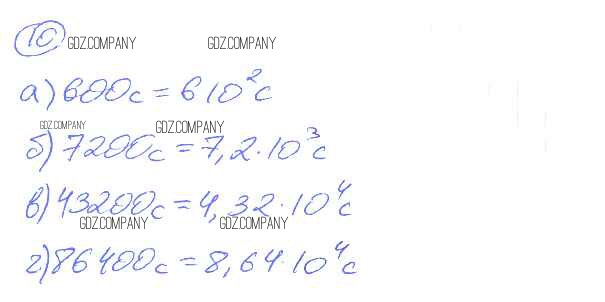 10 GDZ.COMPANY GDZ.COMPANY
а) 600с = 6 10² с
GDZ.COMPANY GDZ.COMPANY
б) 7200с = 7,2·10³ с
в) 43200с = 4,32·10⁴ с
GDZ.COMPANY GDZ.COMPANY
г) 86400с = 8,64·10⁴ с